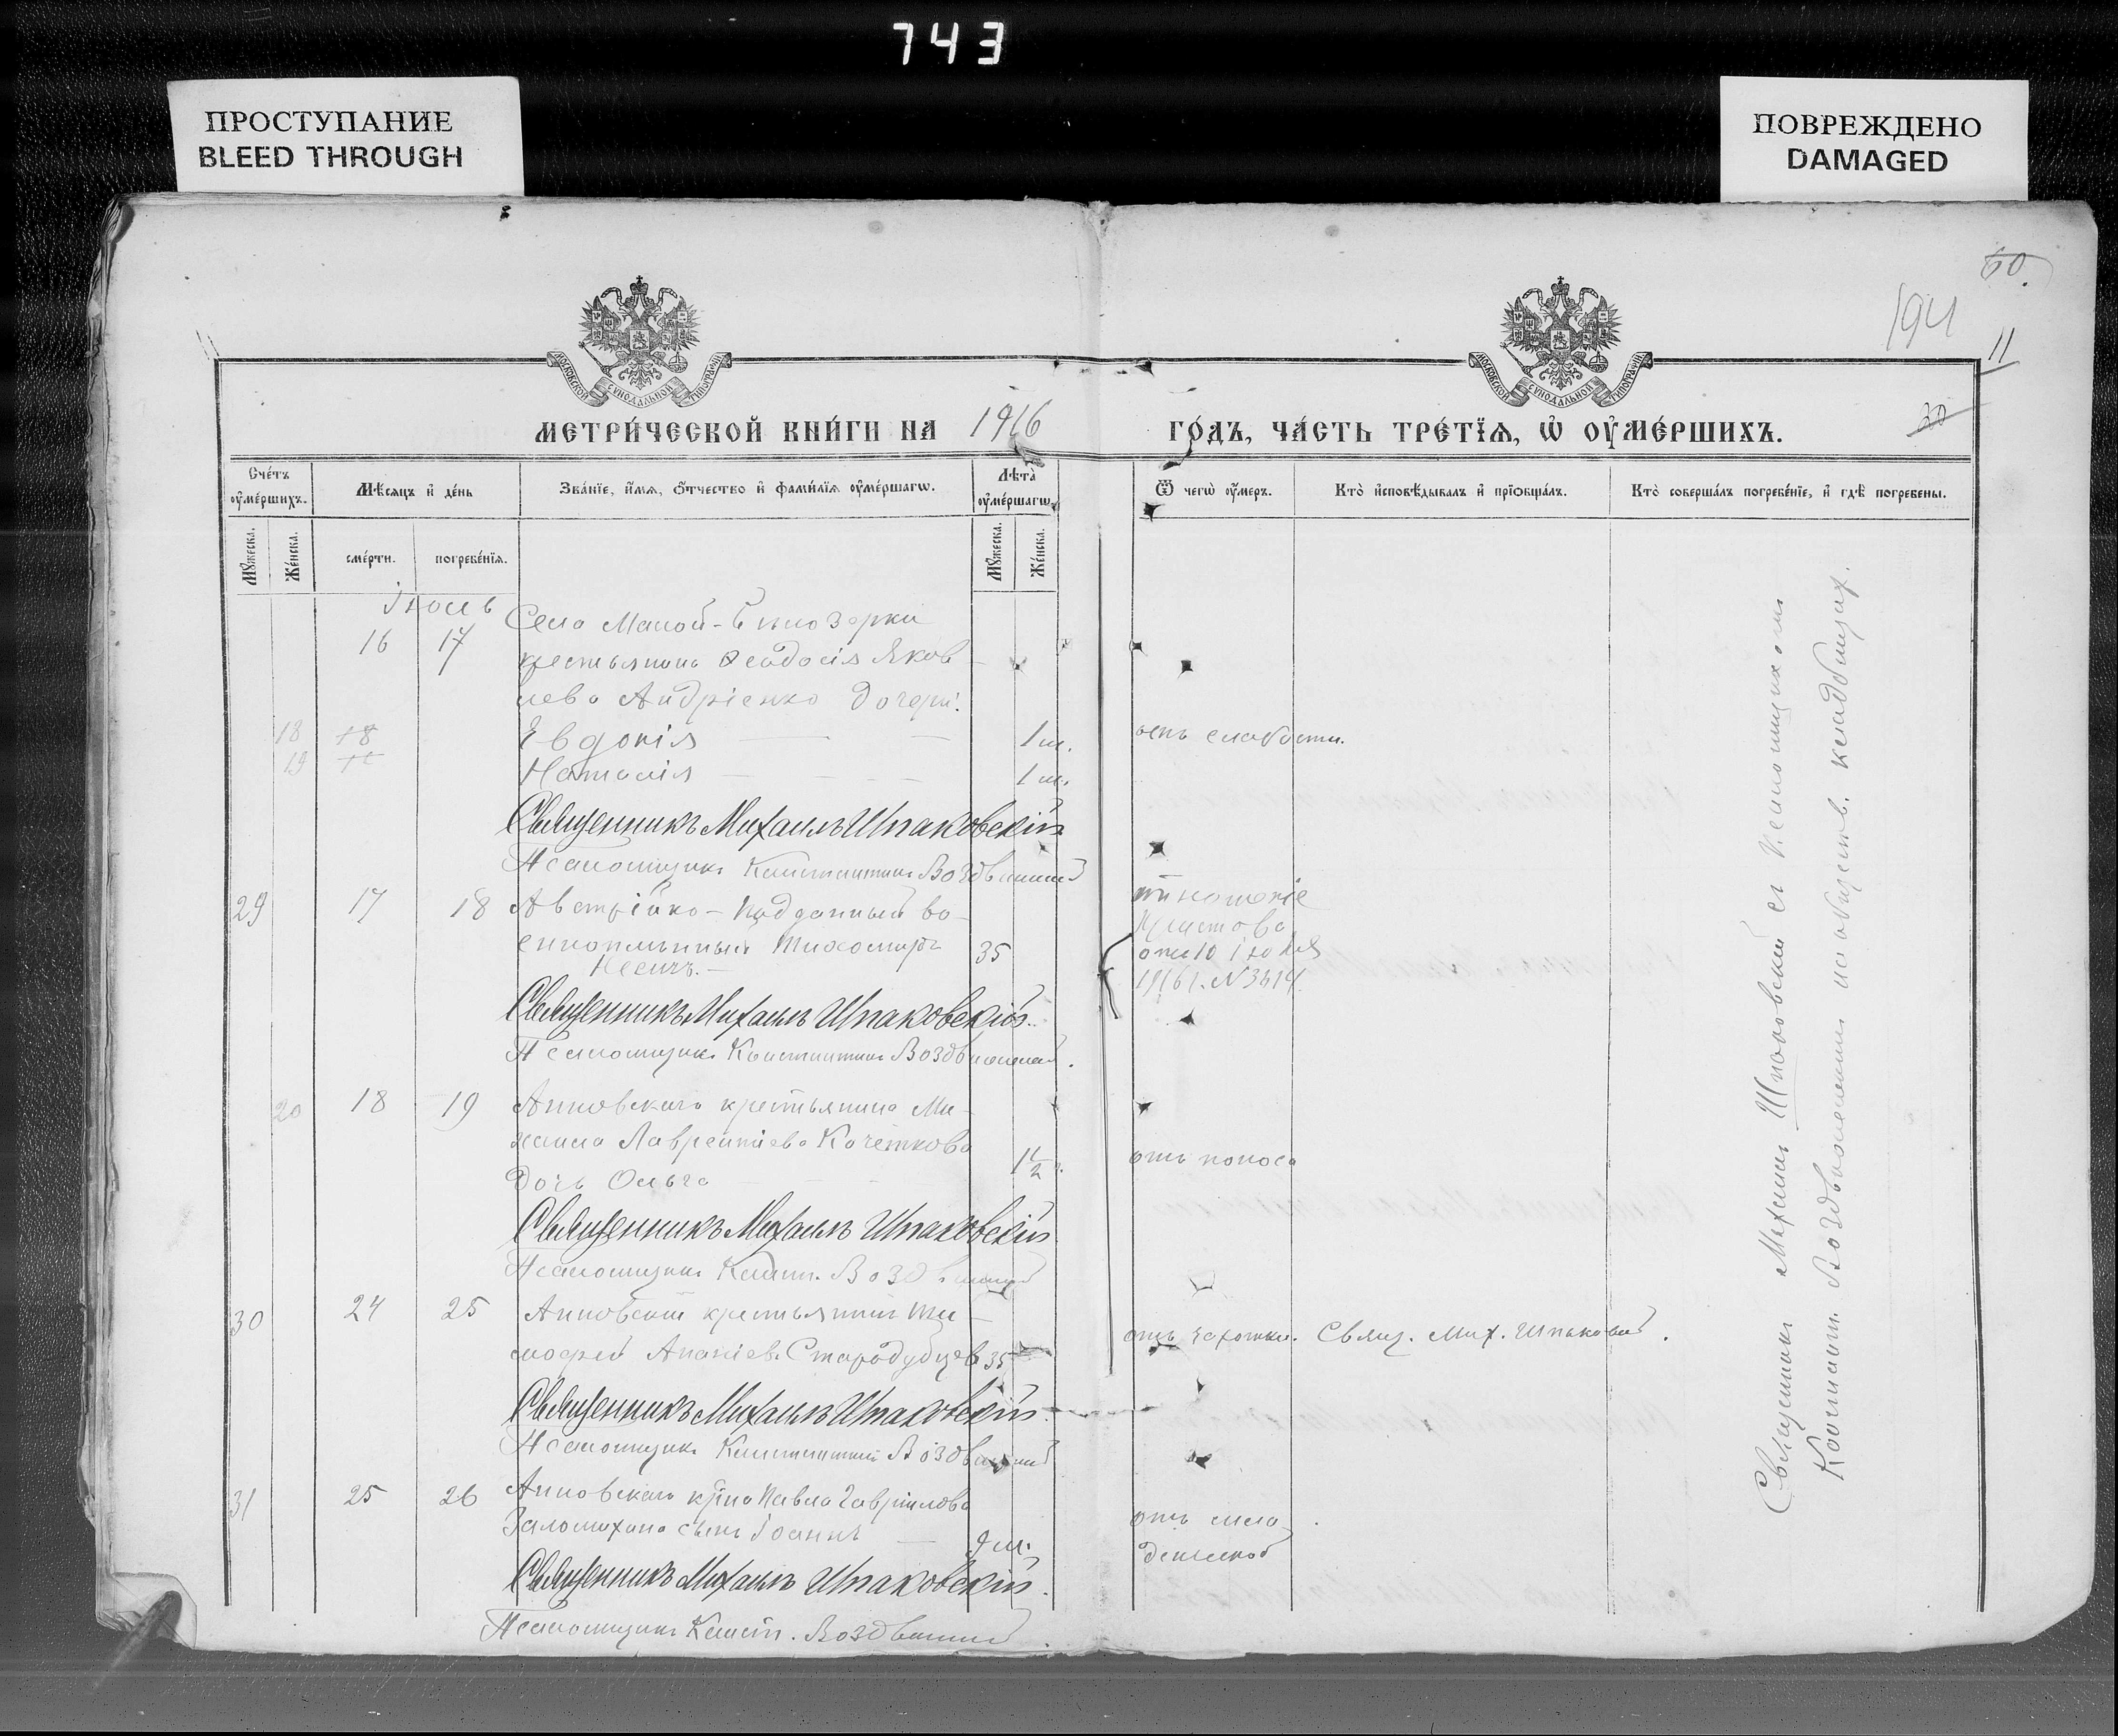 743
ПРОСТУПАНИЕ
BLEED THROUGH
ПОВРЕЖДЕНО
DAMAGED
60
194
11
30
МОСКОВСКОЙ СѴНОДАЛЬНОЙ ТИПОГРАФІИ
МОСКОВСКОЙ СѴНОДАЛЬНОЙ ТИПОГРАФІИ
МЕТРИ́ЧЕСКОЙ КНИ́ГИ НА 1916 ГО́ДЪ, ЧА́СТЬ ТРЕ́ТЇѦ, Ѡ ОУ҆МЕ́РШИХЪ.
Сче́тъ оу҆ме́ршихъ.
Мѣ́сяцъ и҆ де́нь
Зва́нїе, и҆́мѧ, ѻ҆́тчество и҆ фами́лїѧ оу҆ме́ршагѡ.
Лѣта̀ оу҆ме́ршагѡ.
Ѿ чегѡ̀ оу҆́меръ.
Кто̀ и҆сповѣ́дывалъ и҆ прїѻбща́лъ.
Кто̀ соверша́лъ погребе́нїе, и҆ гдѣ̀ погребены.
Мꙋ́жеска.
Же́нска.
сме́рти.
погребе́нїѧ.
Мꙋ́жеска.
Же́нска.
Іюль
16 17 Села Малой-Бѣлозерки
крестьянина Ѳеодосія Яков
лева Андріенко дочери:
18 18 Евдокія — — 1 м. отъ слабости.
19 Наталія — — — 1 м.
Священникъ Михаилъ Шпаковскій
Псаломщикъ Константинъ Воздвиженскій
29 17 18 Австрійско-подданный во-
енноплѣнный Тихомиръ 35
отношеніе
отъ 10 Іюля
1916 г. N 3414
Священникъ Михаилъ Шпаковскій.
Псаломщикъ Константинъ Воздвиженскій.
20 18 19 Анновскаго крестьянина Ми-
хаила Лаврентіева Кочеткова
дочь Ольга — — — 1½ г. отъ поноса
Священникъ Михаилъ Шпаковскій
Псаломщикъ Конст. Воздвиженскій
30 24 25 Анновскій крестьянинъ Ти-
мофей Ананіев. Стародубцев 35 отъ чахотки. Свящ. Мих. Шпаковскій.
Священникъ Михаилъ Шпаковскій.
Псаломщикъ Константинъ Воздвиженскій
31 25 26 Анновскаго кр-на Павла Гавріилова
сынъ Іоаннъ — 9 м. отъ мла
денческой
Священникъ Михаилъ Шпаковскій.
Псаломщикъ Конст. Воздвиженскій.
Священникъ Михаилъ Шпаковскій съ Псаломщикомъ
Констант. Воздвиженскимъ на обществ. кладбищах.